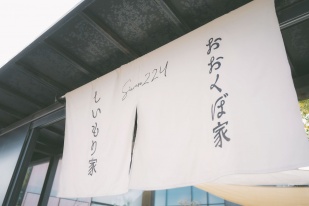 おおくぼ家
Sunn22y
しいもり家